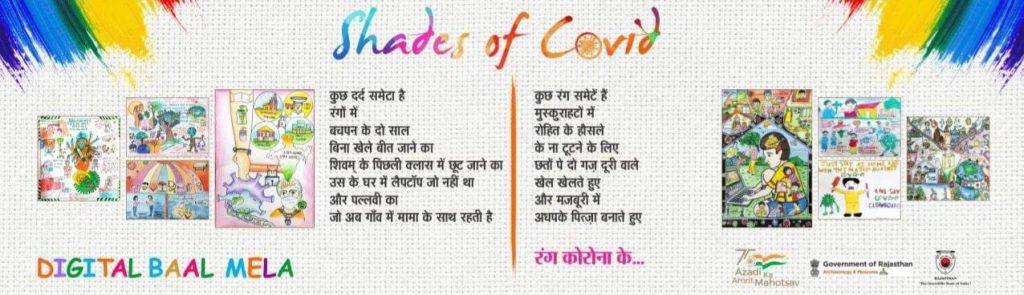 Shades of Covid
कुछ दर्द समेटा है
रंगों में
बचपन के दो साल
बिना खेले बीत जाने का
शिवम् के पिछली क्लास में छूट जाने का
उस के घर में लैपटॉप जो नहीं था
और पल्लवी का
जो अब गाँव में मामा के साथ रहती है
कुछ रंग समेटें हैं
मुस्कुराहटों में
रोहित के हौसले
के ना टूटने के लिए
छतों पे दो गज़ दूरी वाले
खेल खेलते हुए
और मजबूरी में
अधपके पित्ज़ा बनाते हुए
रंग कोरोना के...
DIGITAL BAAL MELA
75
Azadi Ka
Amrit Mahotsav
Government of Rajasthan
Archaeology & Museums
RAJASTHAN
The Incredible State of India!